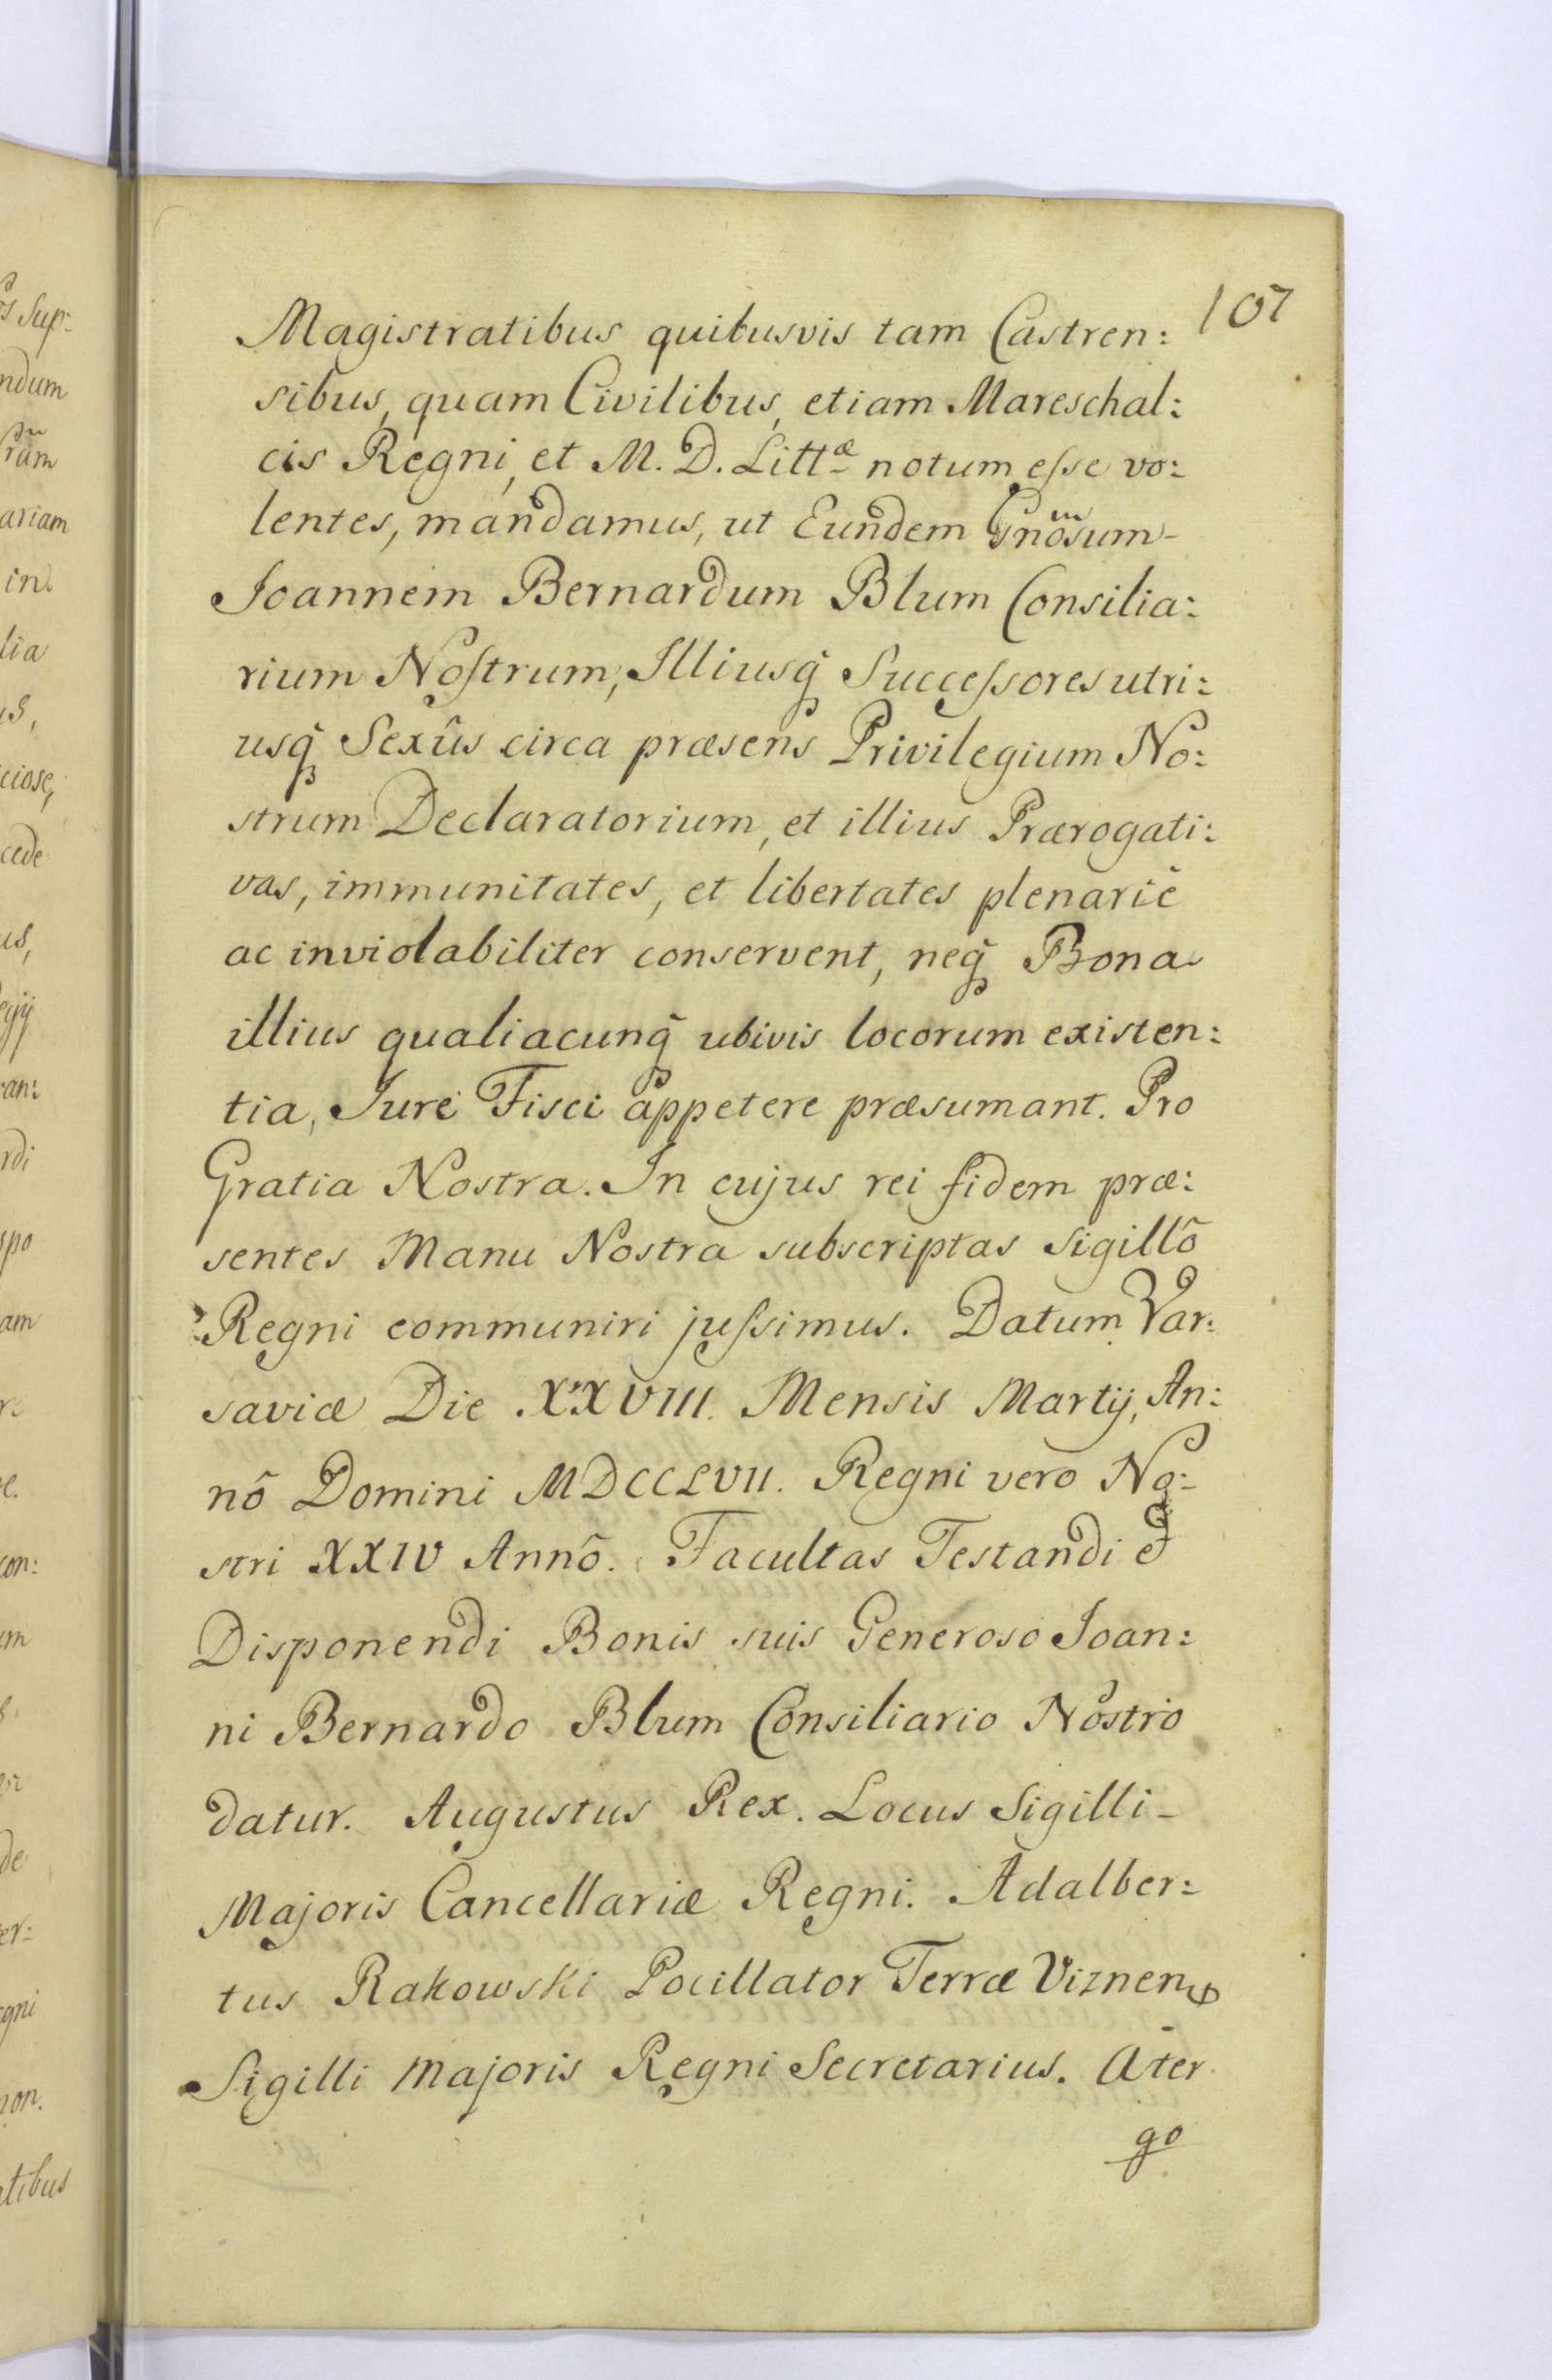 107
Magistratibus quibusvis tam Castren:
sibus, quam Civilibus, etiam Mareschal:
cis Regni, et M. D. Littæ notum esse vo:
lentes, mandamus, ut Eundem Gnõsum
Joannem Bernardum Blum Consilia:
rium Nostrum, Illiusq̃ Successores utri:
usq̃ Sexûs circa præsens Privilegium No:
strum Declaratorium, et illius Prærogati:
vas, immunitates, et libertates plenariè
ac inviolabiliter conservent, neq̃ Bona
illius qualiacunq̃ ubivis locorum existen:
tia, Jure Fisci appetere præsumant. Pro
Gratia Nostra. In cujus rei fidem præ:
sentes Manu Nostra subscriptas Sigillô
Regni communiri jussimus. Datum Var:
saviæ Die XXVIII. Mensis Martij, An:
nô Domini MDCCLVII. Regni vero No:
stri XXIV Annô. Facultas Testandi et
Disponendi Bonis suis Generoso Joan:
ni Bernardo Blum Consiliario Nostro
datur. Augustus Rex. Locus Sigilli
Majoris Cancellariæ Regni. Adalber:
tus Rakowski Pocillator Terræ Viznen
Sigilli Majoris Regni Secretarius. Ater
go